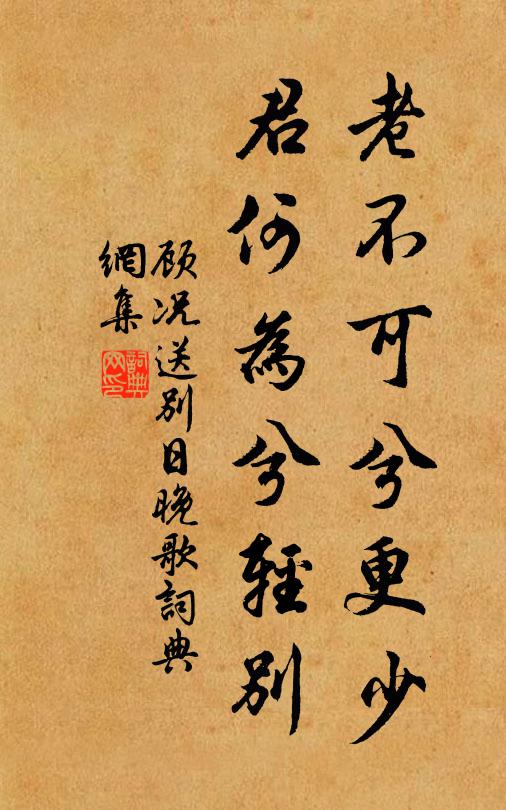 老不可兮更少
君何為兮輕別
顾况送別日晚歌詞典
網集
詞典
网印